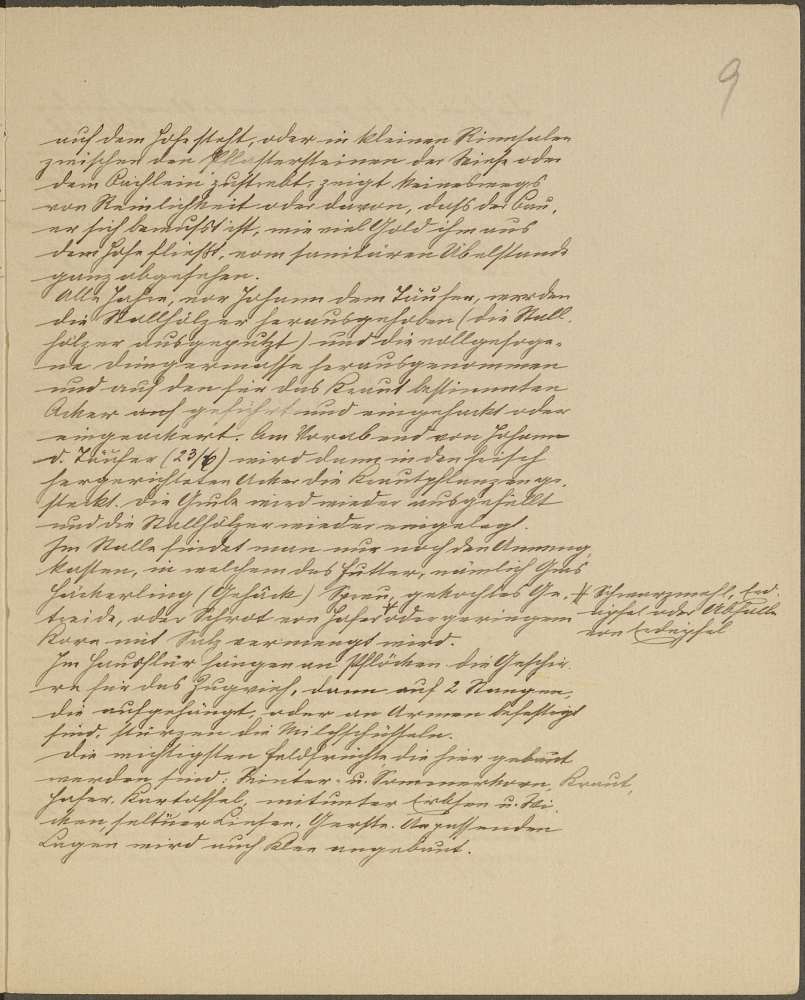 9
auf dem Hofe steht, oder in kleinen Rinnsalen
zwischen den Pflastersteinen der Wiese oder
dem Bächlein zustrebt, zeigt keineswegs
von Reinlichkeit oder davon, daß der Bau-
er sich bewußt ist, wie viel Gold ihm aus
dem Hofe fließt, vom sanitären Übelstande
ganz abgesehen.
Alle Jahre, vor Johann dem Täufer, werden
die Stallhölzer herausgehoben (die Stall-
hölzer ausgeputzt) und die vollgesoge-
ne Düngermasse herausgenommen
und auf den für das Kraut bestimmten
Acker auf geführt und eingehackt oder
eingeackert. Am Vorabend von Johann
d. Täufer (23/6) wird dann in den frisch
hergerichteten Acker die Krautpflanzen ge-
steckt. Die Grube wird wieder ausgefüllt
und die Stallhölzer wieder eingelegt.
Im Stalle findet man nur noch den
kasten, in welchem das Futter, nämlich Gras
Häckerling (Gehäck) Spreu, gekochtes Ge-
treide, oder Schrot von Hafer oder geringem
Korn mit Salz vermengt wird.
Schwarzmehl, Erd-
äpfel oder Abfälle
von Erdäpfel
Im Hausflur hängen an Pflöcken die Geschir-
re für das Zugvieh, dann auf 2 Stangen,
die aufgehängt, oder an Armen befestigt
sind, stürzen die Milchschüsseln.
Die wichtigsten Feldfrüchte die hier gebaut
werden sind: Winter- u. Sommerkorn, Kraut,
Hafer, Kartoffel, mitunter Erbsen u. Wi-
cken, seltener Linsen, Gerste. An passenden
Lagen wird auch Klee angebaut.